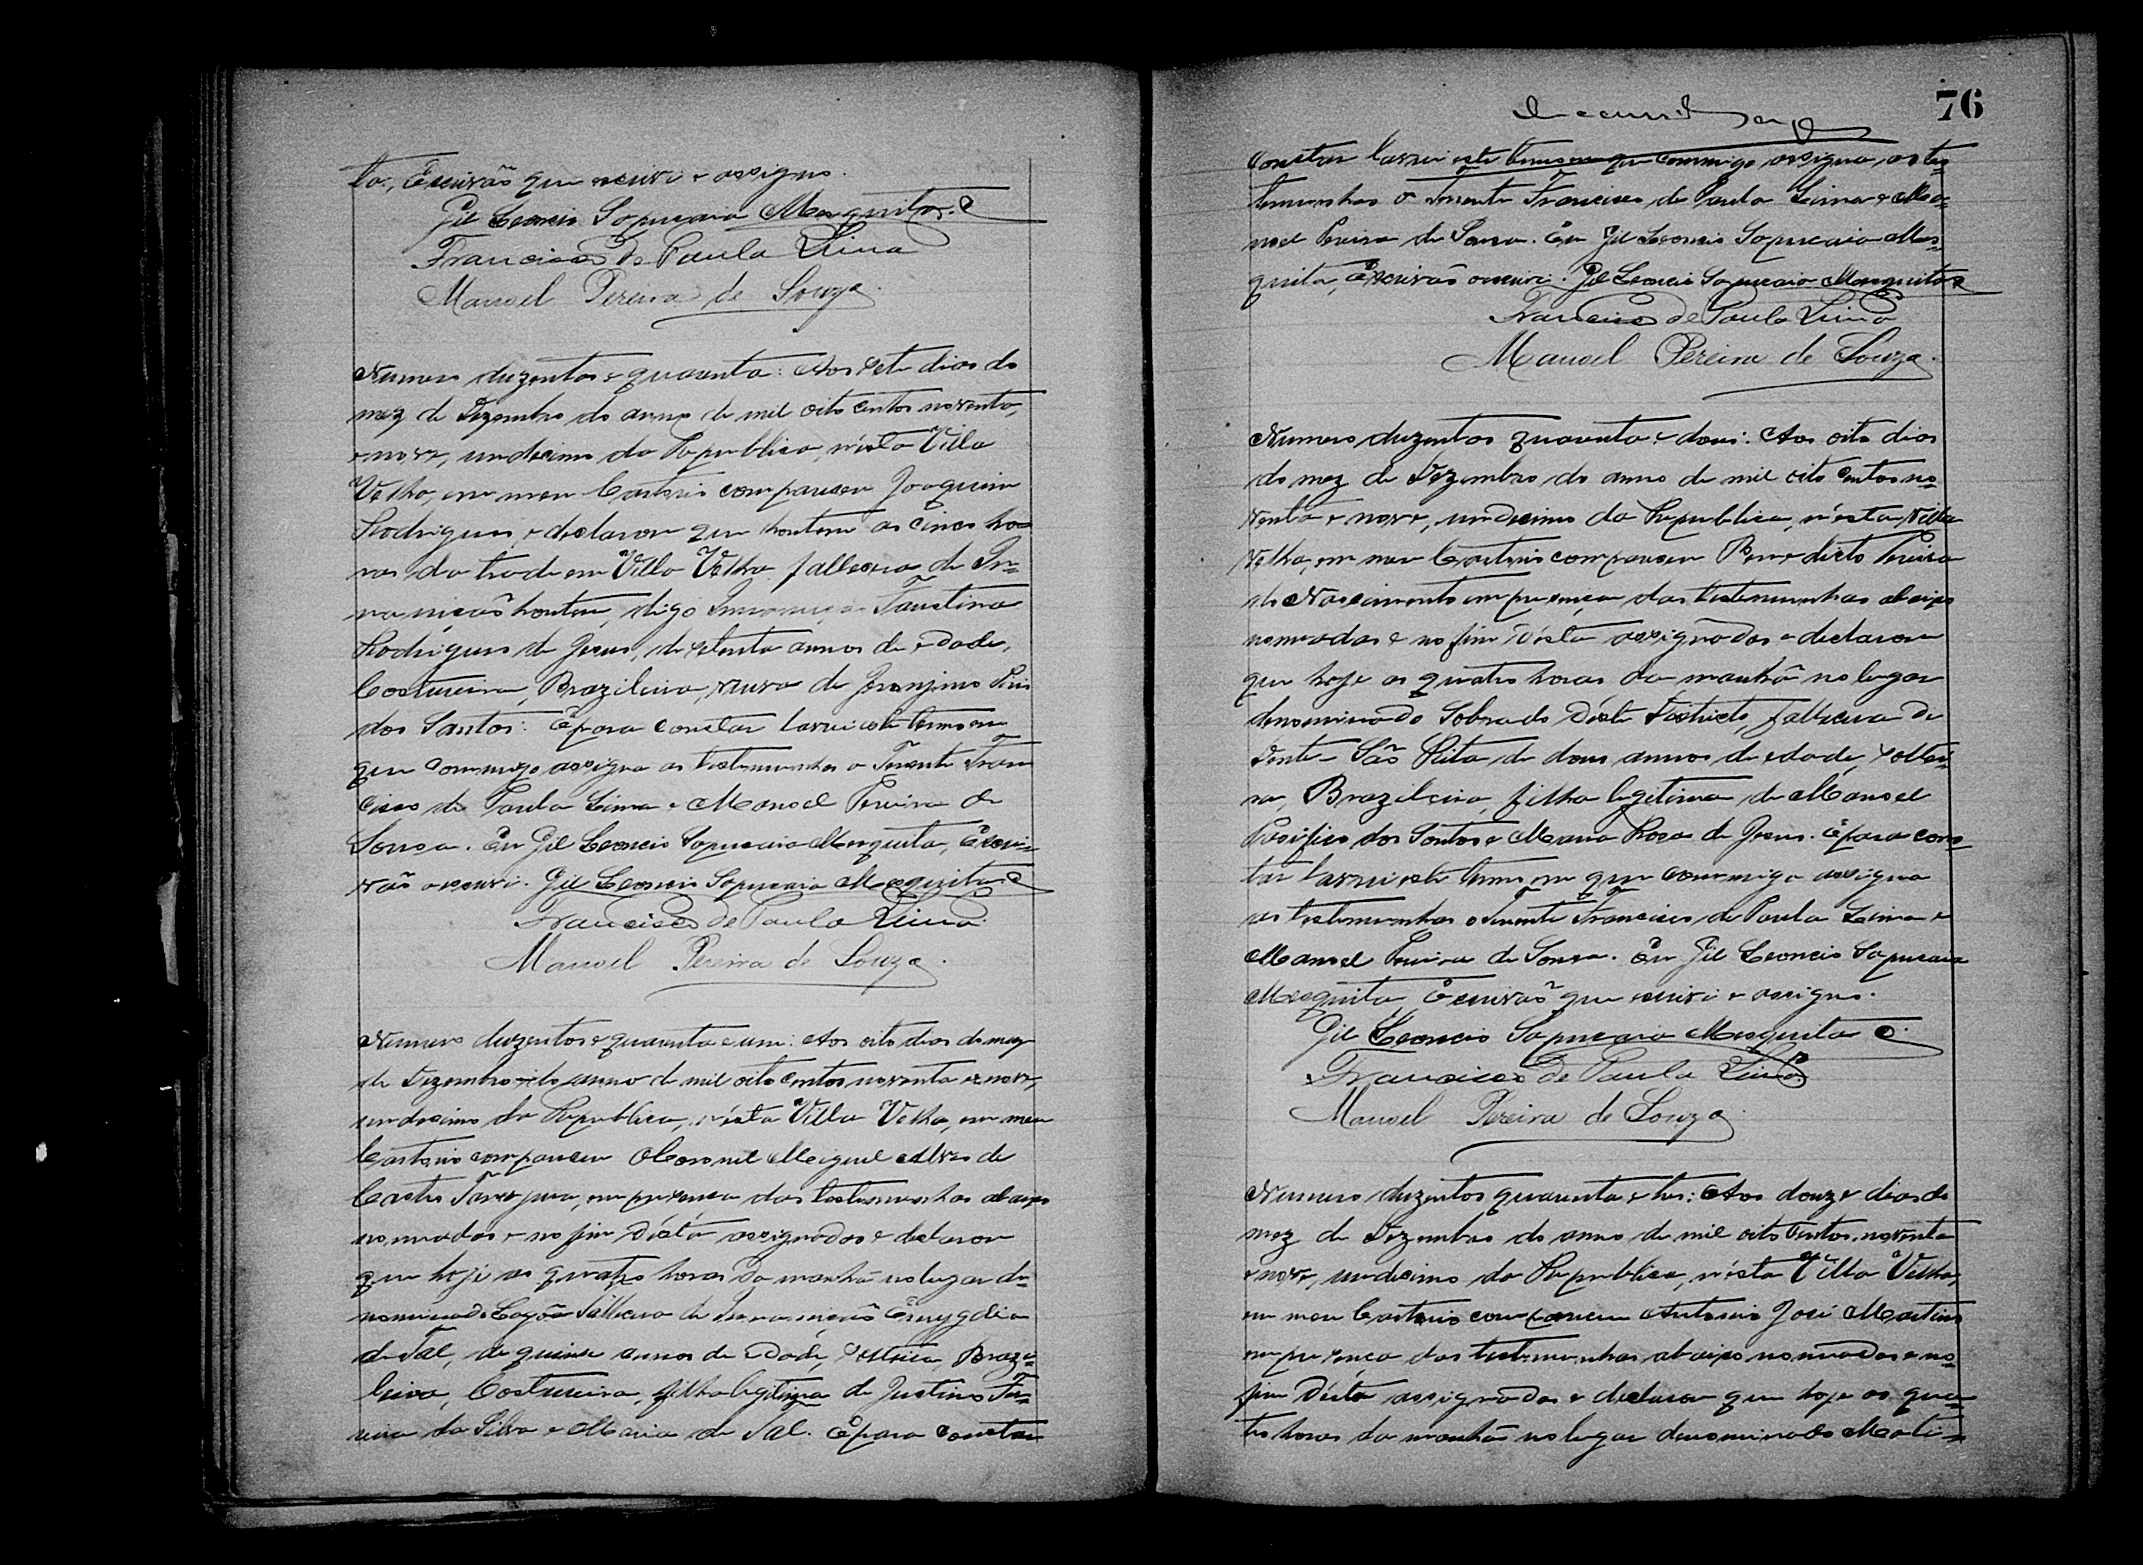 ta, Escrivão que escrivi e assigno.
Gil Leoncio Sapucaia Mesquita
Francisco de Paula Lima
Manoel Pereira de Souza.
Numero duzentos e quarenta: Aos sete dias do
mez de Dezembro do anno de mil oito centos noventa
e nove, undecimo da Republica, n'ésta Villa
Velha, em meu Cartorio compareceu Joaquim
Rodrigues, e declarou que hontem as cinco ho
ras da tarde em Villa Velha falleceu de In=
nanição hontem, digo Innanição Faustina
Rodrigues de Jesus, de setenta annos de edade,
Costureira, Brazileira, viuva de Jeronjimo
dos Santos: E para constar lavrei este termo em
que commigo assigna as testemunhas o Tenente Fran
cisco de Paula Lima e Manoel Pereira de
Sousa. Eu Gil Leoncio Sapucaia Mesquita, Escri=
vão o escrivi. Gil Leoncio Sapucaia Mesquita
Francisco de Paula Lima.
Manoel Pereira de Souza.
Numero duzentos e quarenta e um: Aos oito dias do mez
de Dezembro do anno de mil oito centos noventa e nove,
undecimo da Republica, n'ésta Villa Velha, em meu
Cartorio compareceu o Coronel Miguel Alves de
Castro, em presença das testemunhas abaixo
nomeadas e no fim d'ésta assignadas e declarou
que hoje as quatro horas da manhã no lugar de=
nominado Lagôa falleceu de Innanição Emygdia
de Tal, de quinse annos de edade, solteira Brazi=
leira, Costureira, filha legitima de Justino Fer=
reira da Silva e Maria de Tal. E para constar
76
constar lavrei este termo em que commigo assigna, as tes=
temunhas o Tenente Francisco de Paula Lima e Ma=
noel Pereira de Sousa. Eu Gil Leoncio Sapucaia Mes=
quita, Escrivão o escrivi. Gil Leoncio Sapucaia Mesquita
Francisco de Paula Lima
Manoel Pereira de Souza.
Numero duzentos quarenta e dous: Aos oito dias
do mez de Dezembro do anno de mil oito centos no=
venta e nove, undecimo da Republica, n'ésta Villa
Velha, em meu Cartorio compareceu Benedicto Pereira
do Nascimento em presença das testemunhas abaixo
nomeadas e no fim d'ésta assignados e declarou
que hoje as quatro horas da manhã no lugar
denominado Sobrado déste Districto, falleceu de
Dente Rita de dous annos de edade, soltei=
ra, Brazileira, filha legitima de Manoel
Pacifico dos Santos e Maria Rosa de Jesus. E para cons=
tar lavrei este termo em que commigo assigna
as testemunhas o Tenente Francisco de Paula Lima e
Manoel Pereira de Sousa. Eu Gil Leoncio Sapucaia
Mesquita Escrivão que escrivi e assigno.
Gil Leoncio Sapucaia Mesquita
Francisco de Paula Lima
Manoel Pereira de Souza
Numero duzentos quarenta e tres: Aos douze dias do
mez de Dezembro do anno de mil oito centos noventa
e nove, undecimo da Republica, n'ésta Villa Velha,
em meu Cartorio compareceu Antonio José Martins
em presença das testemunhas abaixo nomeadas e no
fim d'ésta assignadas e declarou que hoje as qua=
tro horas da manhã no lugar denominado Mati=